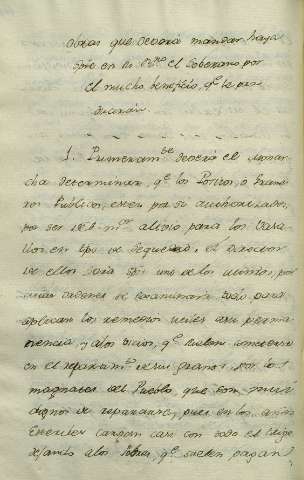 obras que deverá mandar haya
spre en la el Soberano por
el mucho beneficio, qe le pro
ducirán.
1. Primeramte deverá el Monar
cha determinar, qe los Positos, o Grane
ros Publicos, esten por si authorizados,
por ser alivio para los Vasa
llos en tpo de sequedad, el Director
de ellos será spre uno de los por
cuias ordenes se examinará todo, para
aplicar los remedios utiles a su perma
nencia, y a los vicios, qe suelen cometerse
en el repartimto de sus granos por los
magnates del Pueblo, que son mui
dignos de repararse, pues en los años
esteriles cargan casi con todo el trigo
dejando a los Pobres, qe suelen pagar